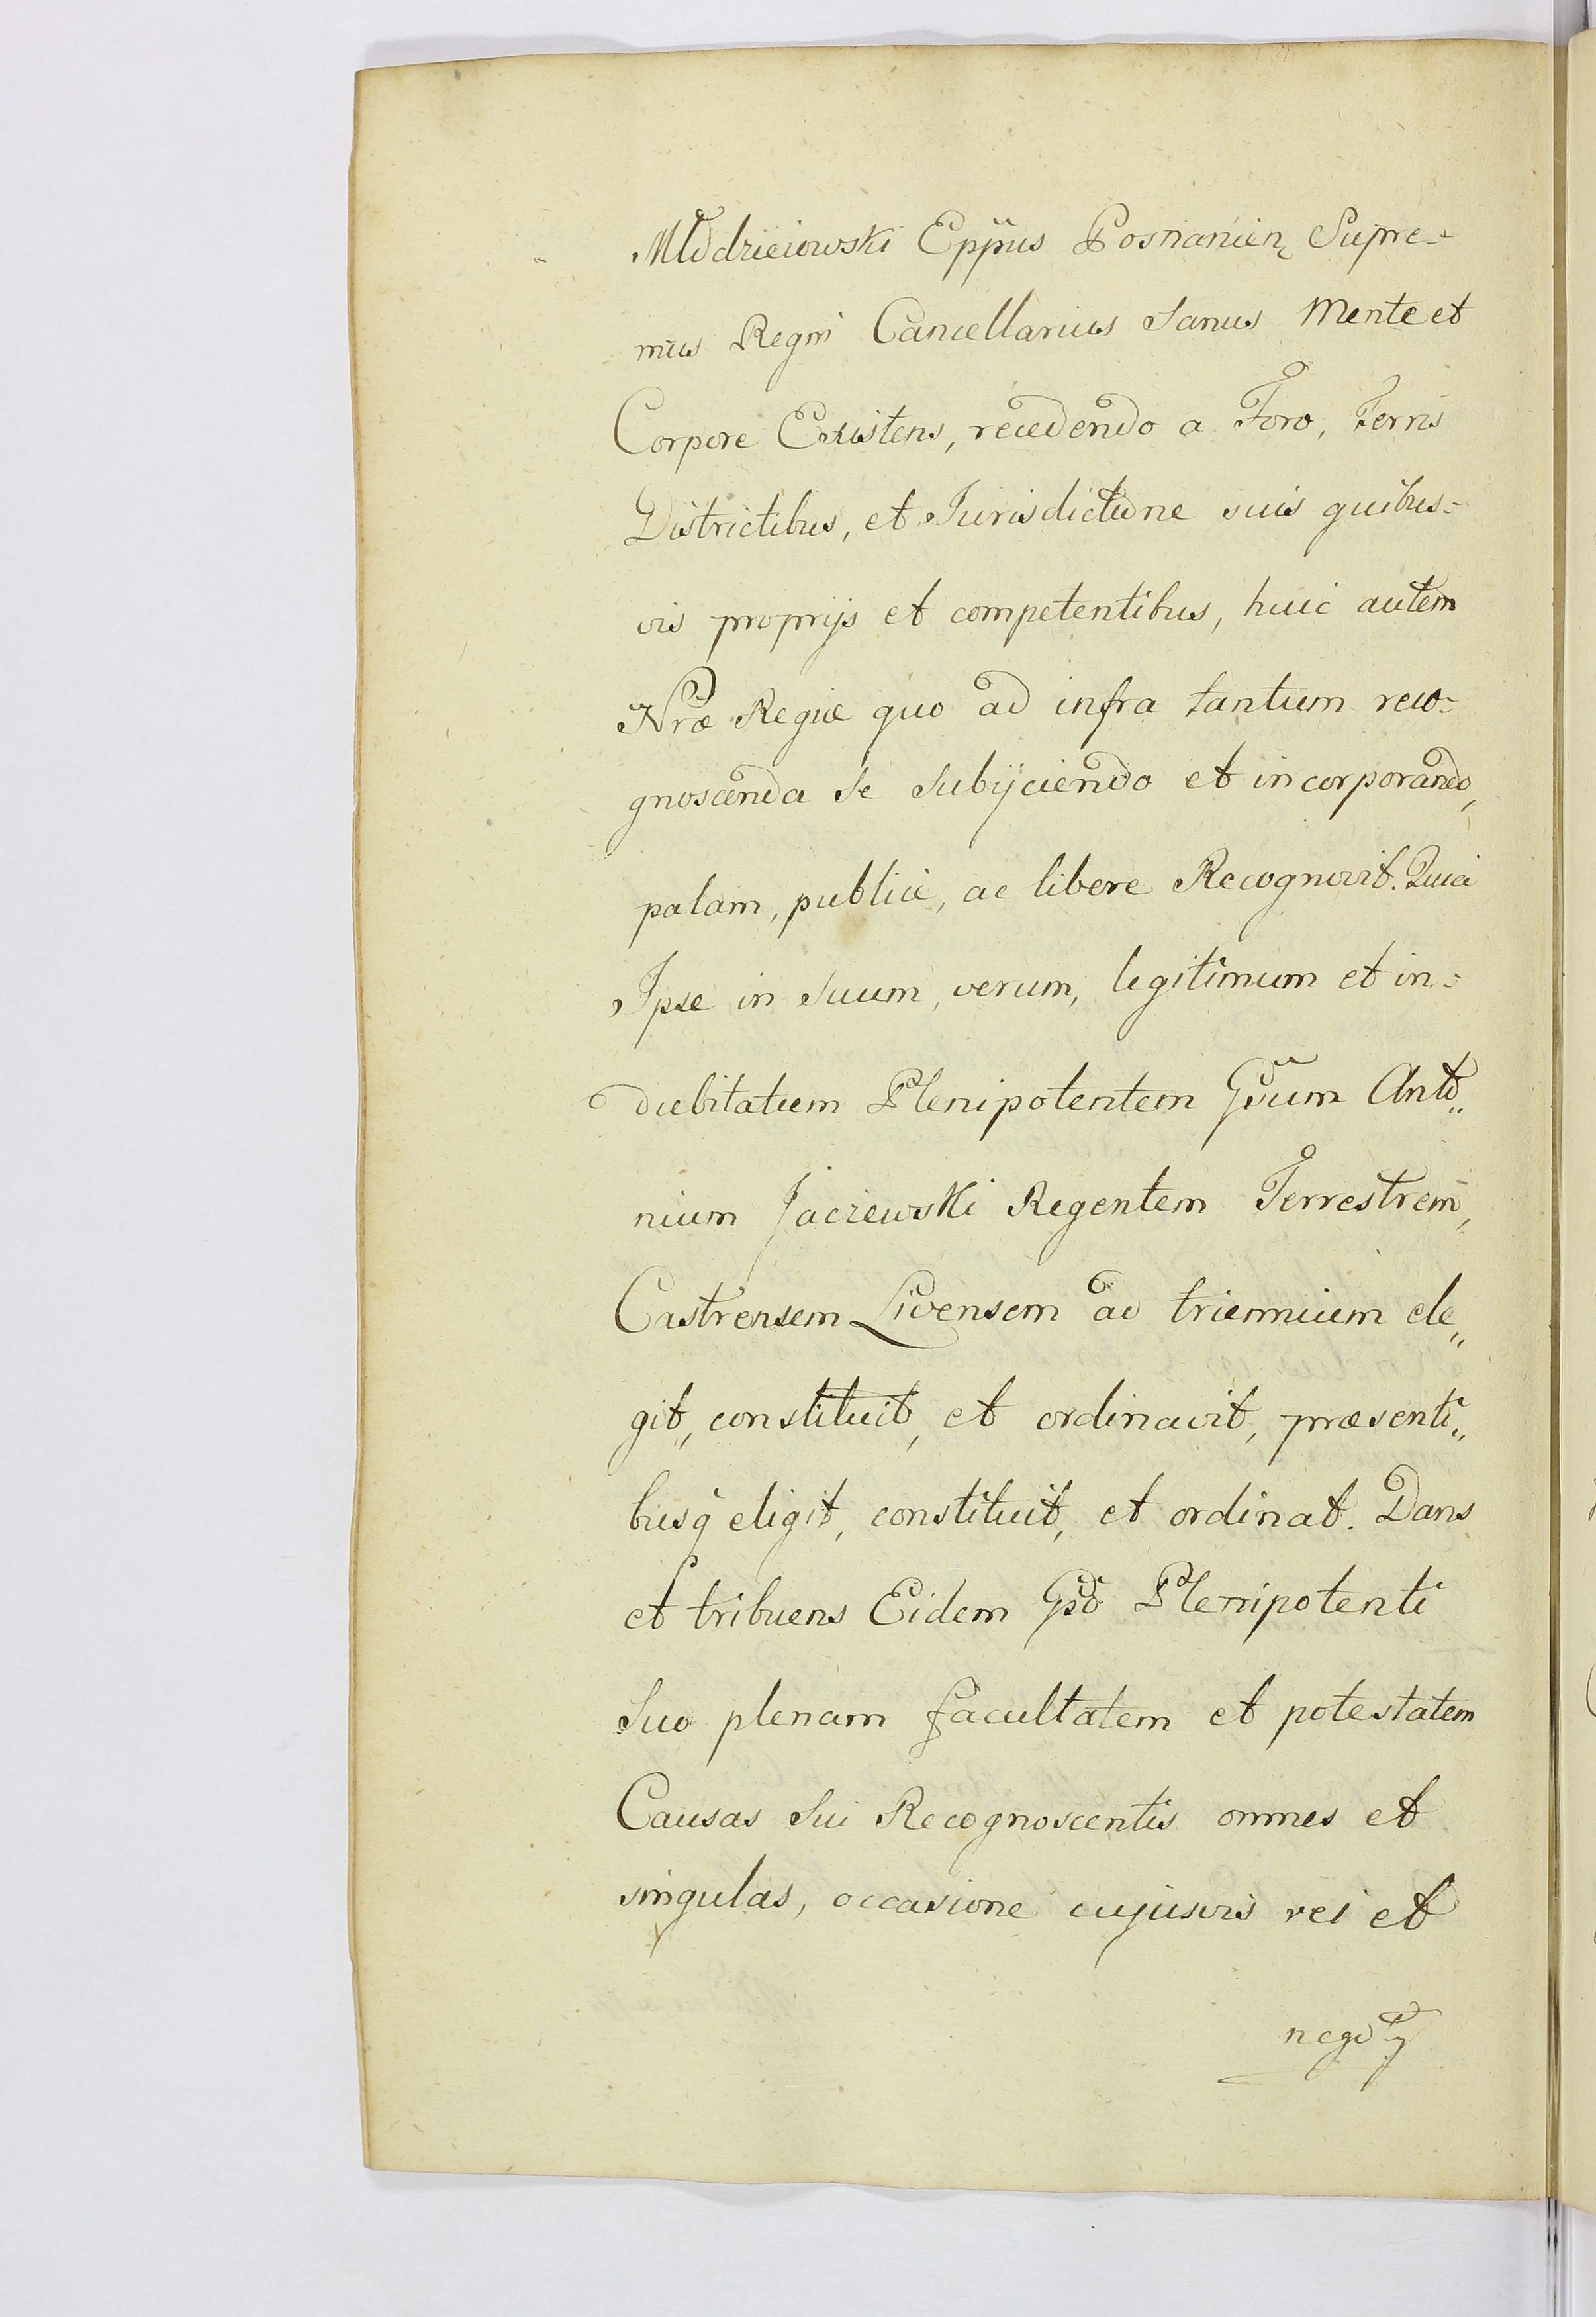 Młodzieiowski Eppus Posnanien Supre=
mus Regni Cancellarius Sanus Mente et
Corpore Existens, recedendo a Foro, Terris
Districtibus, et Jurisdictione suis quibus=
vis proprijs et competentibus, huic autem
Nrae Regiae quo ad infra tantum reco=
gnoscenda se subijciendo et incorporando,
palam, publice, ac libere Recognovit. Quia
Ipse in suum, verum, legitimum et in=
dubitatum Plenipotentem Gsum Anto„
nium Jaczewski Regentem Terrestrem,
Castrensem Livensem ad triennium ele„
git, constituit, et ordinavit, praesenti„
busq̃ eligit, constituit, et ordinat. Dans
et tribuens Eidem Gso Plenipotenti
suo plenam facultatem et potestatem
Causas sui Recognoscentis omnes et
singulas, occasione cujusvis rei et